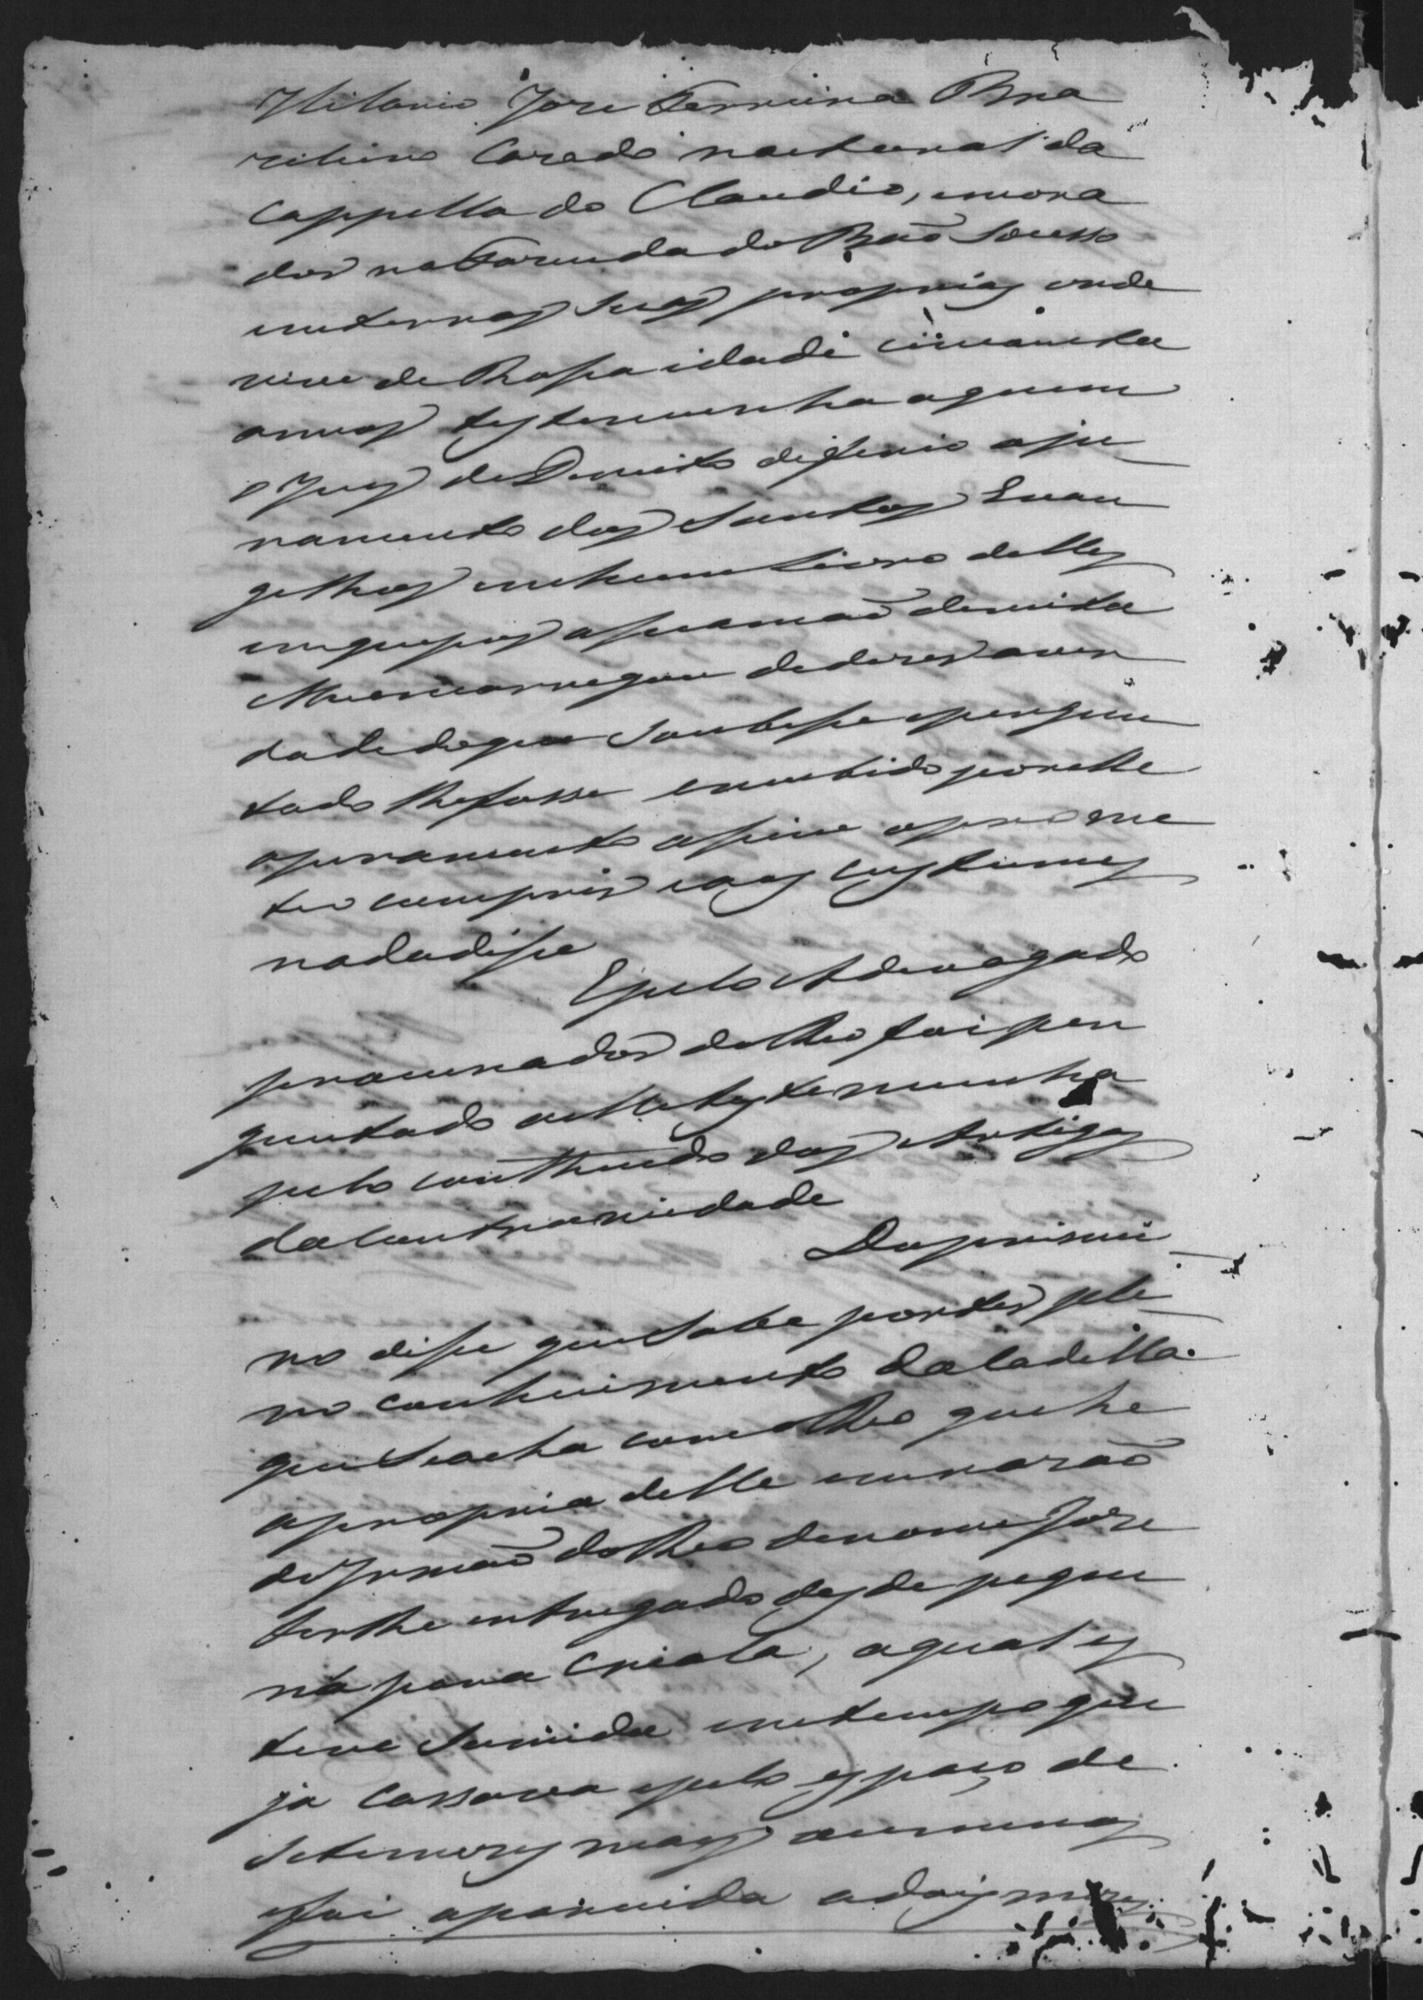 Hilario Jose Ferreira Bra
zileiro Cazado natural da
Cappella do Claudio, emora
dor na Fazenda do Bão Sucesso
emterras suas proprias onde
vive de Rosa idade cincoenta
annos testemunha aquem
o Juiz de Direito deferio oju
ramento dos Santos Evan
gelhos emhum Livro delles
emquepos asuamão direita
elheemcarregou dedizer aver
dade doque soubesse epergun
tado lhefosse erecebido porelle
ojuramento assim oprome
teo cumprir eaos custumes
nadadisse
Epelo Advogado
procurador doReo foi per
guntado aella testemunha
pelo conthiudo dos Artigos
daContrariedade
Doprimei
ro disse queSabe porter ple
no conhecimento Dacadella
queSeacha comoReo quehe
apropria delle emrazão
do Irmão doReo denome Jose
terlhe entregado desde peque
na para Criala, aqual es
teve Sumida emtempo que
ja cassava epelo espaço de
Setemezes mais oumenos
efoi aparecida adois mezes